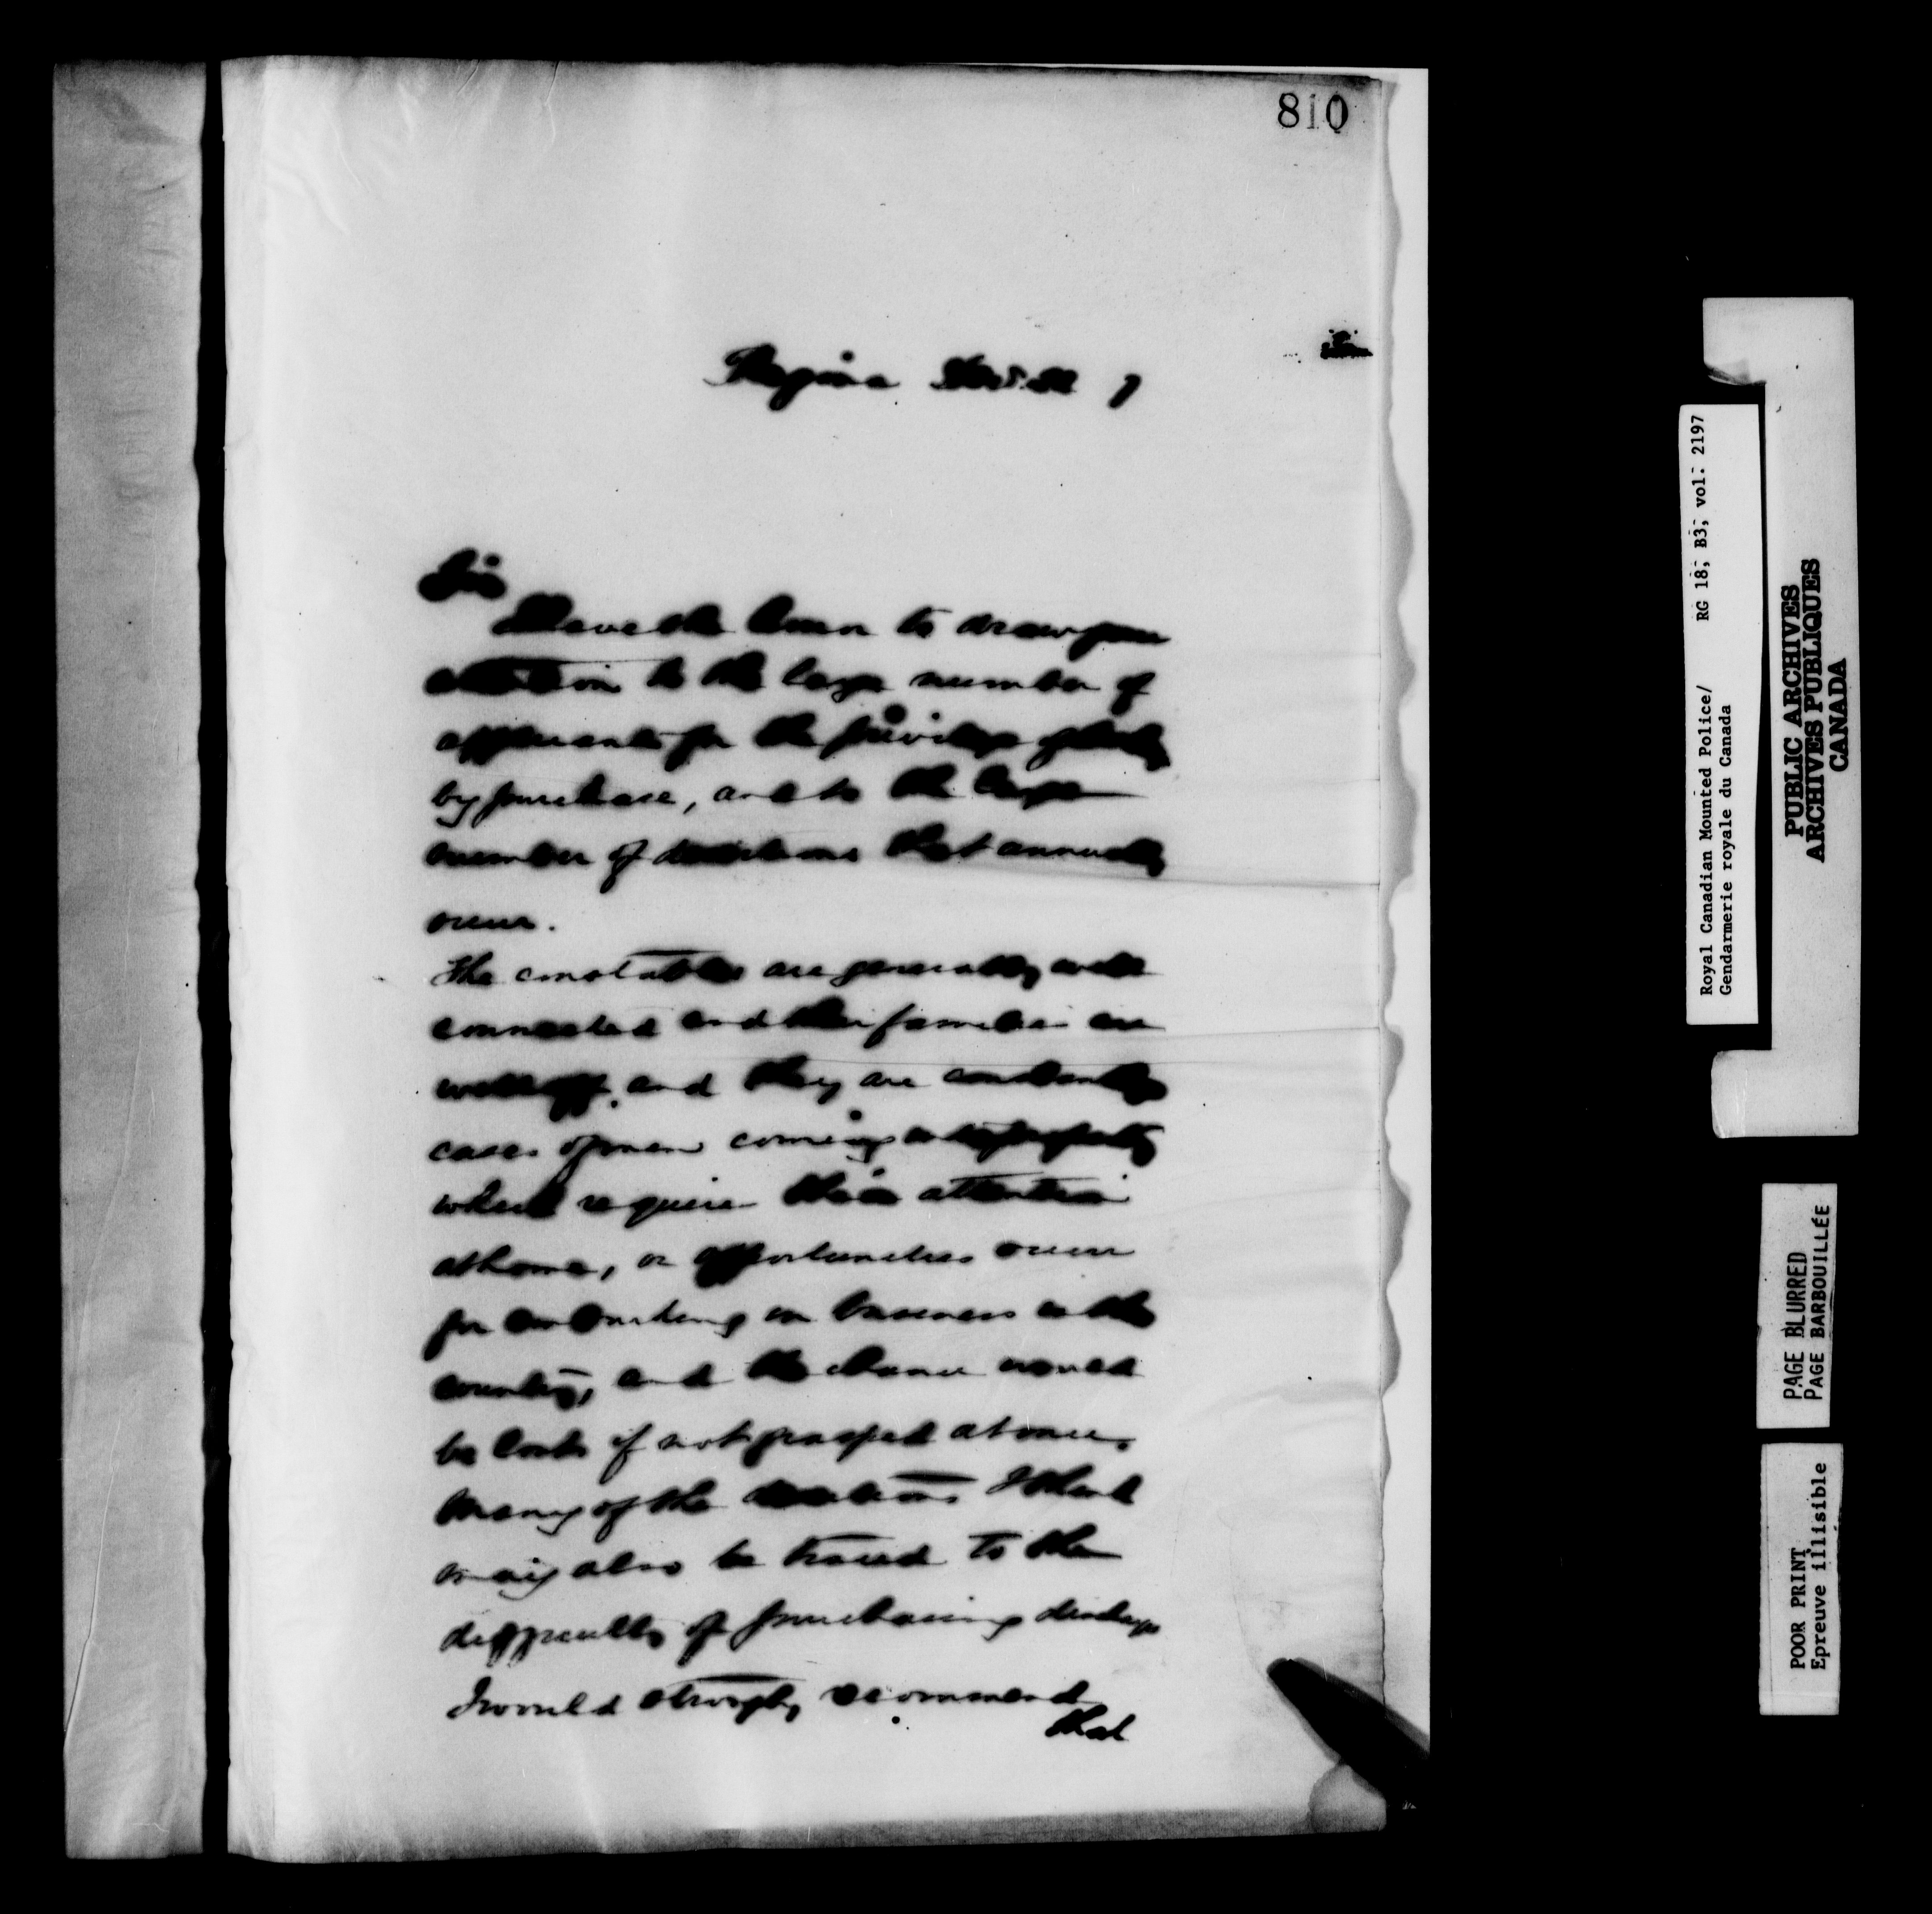 810
Regina
Sir
I have the honor to draw your
attention to the large number of
applicants for the privilege of
by purchase, and to the large
number of desertions that annually
occur.
The constables are generally well
connected and their families are
well off, and they are constantly
cases of men coming into property
which require their attention
at home, or opportunities occur
for embarking in business in the
country, and the chance would
be lost if not grasped at once.
Many of the desertions I think
may also be traced to the
difficulty of purchasing discharge
I would strongly recommend
that
Royal Canadian Mounted Police/ RG 18, B3, vol. 2197
Gendarmerie royale du Canada
PUBLIC ARCHIVES
ARCHIVES PUBLIQUES
CANADA
PAGE BLURRED
PAGE BARBOUILLÉE
POOR PRINT
Epreuve illisible